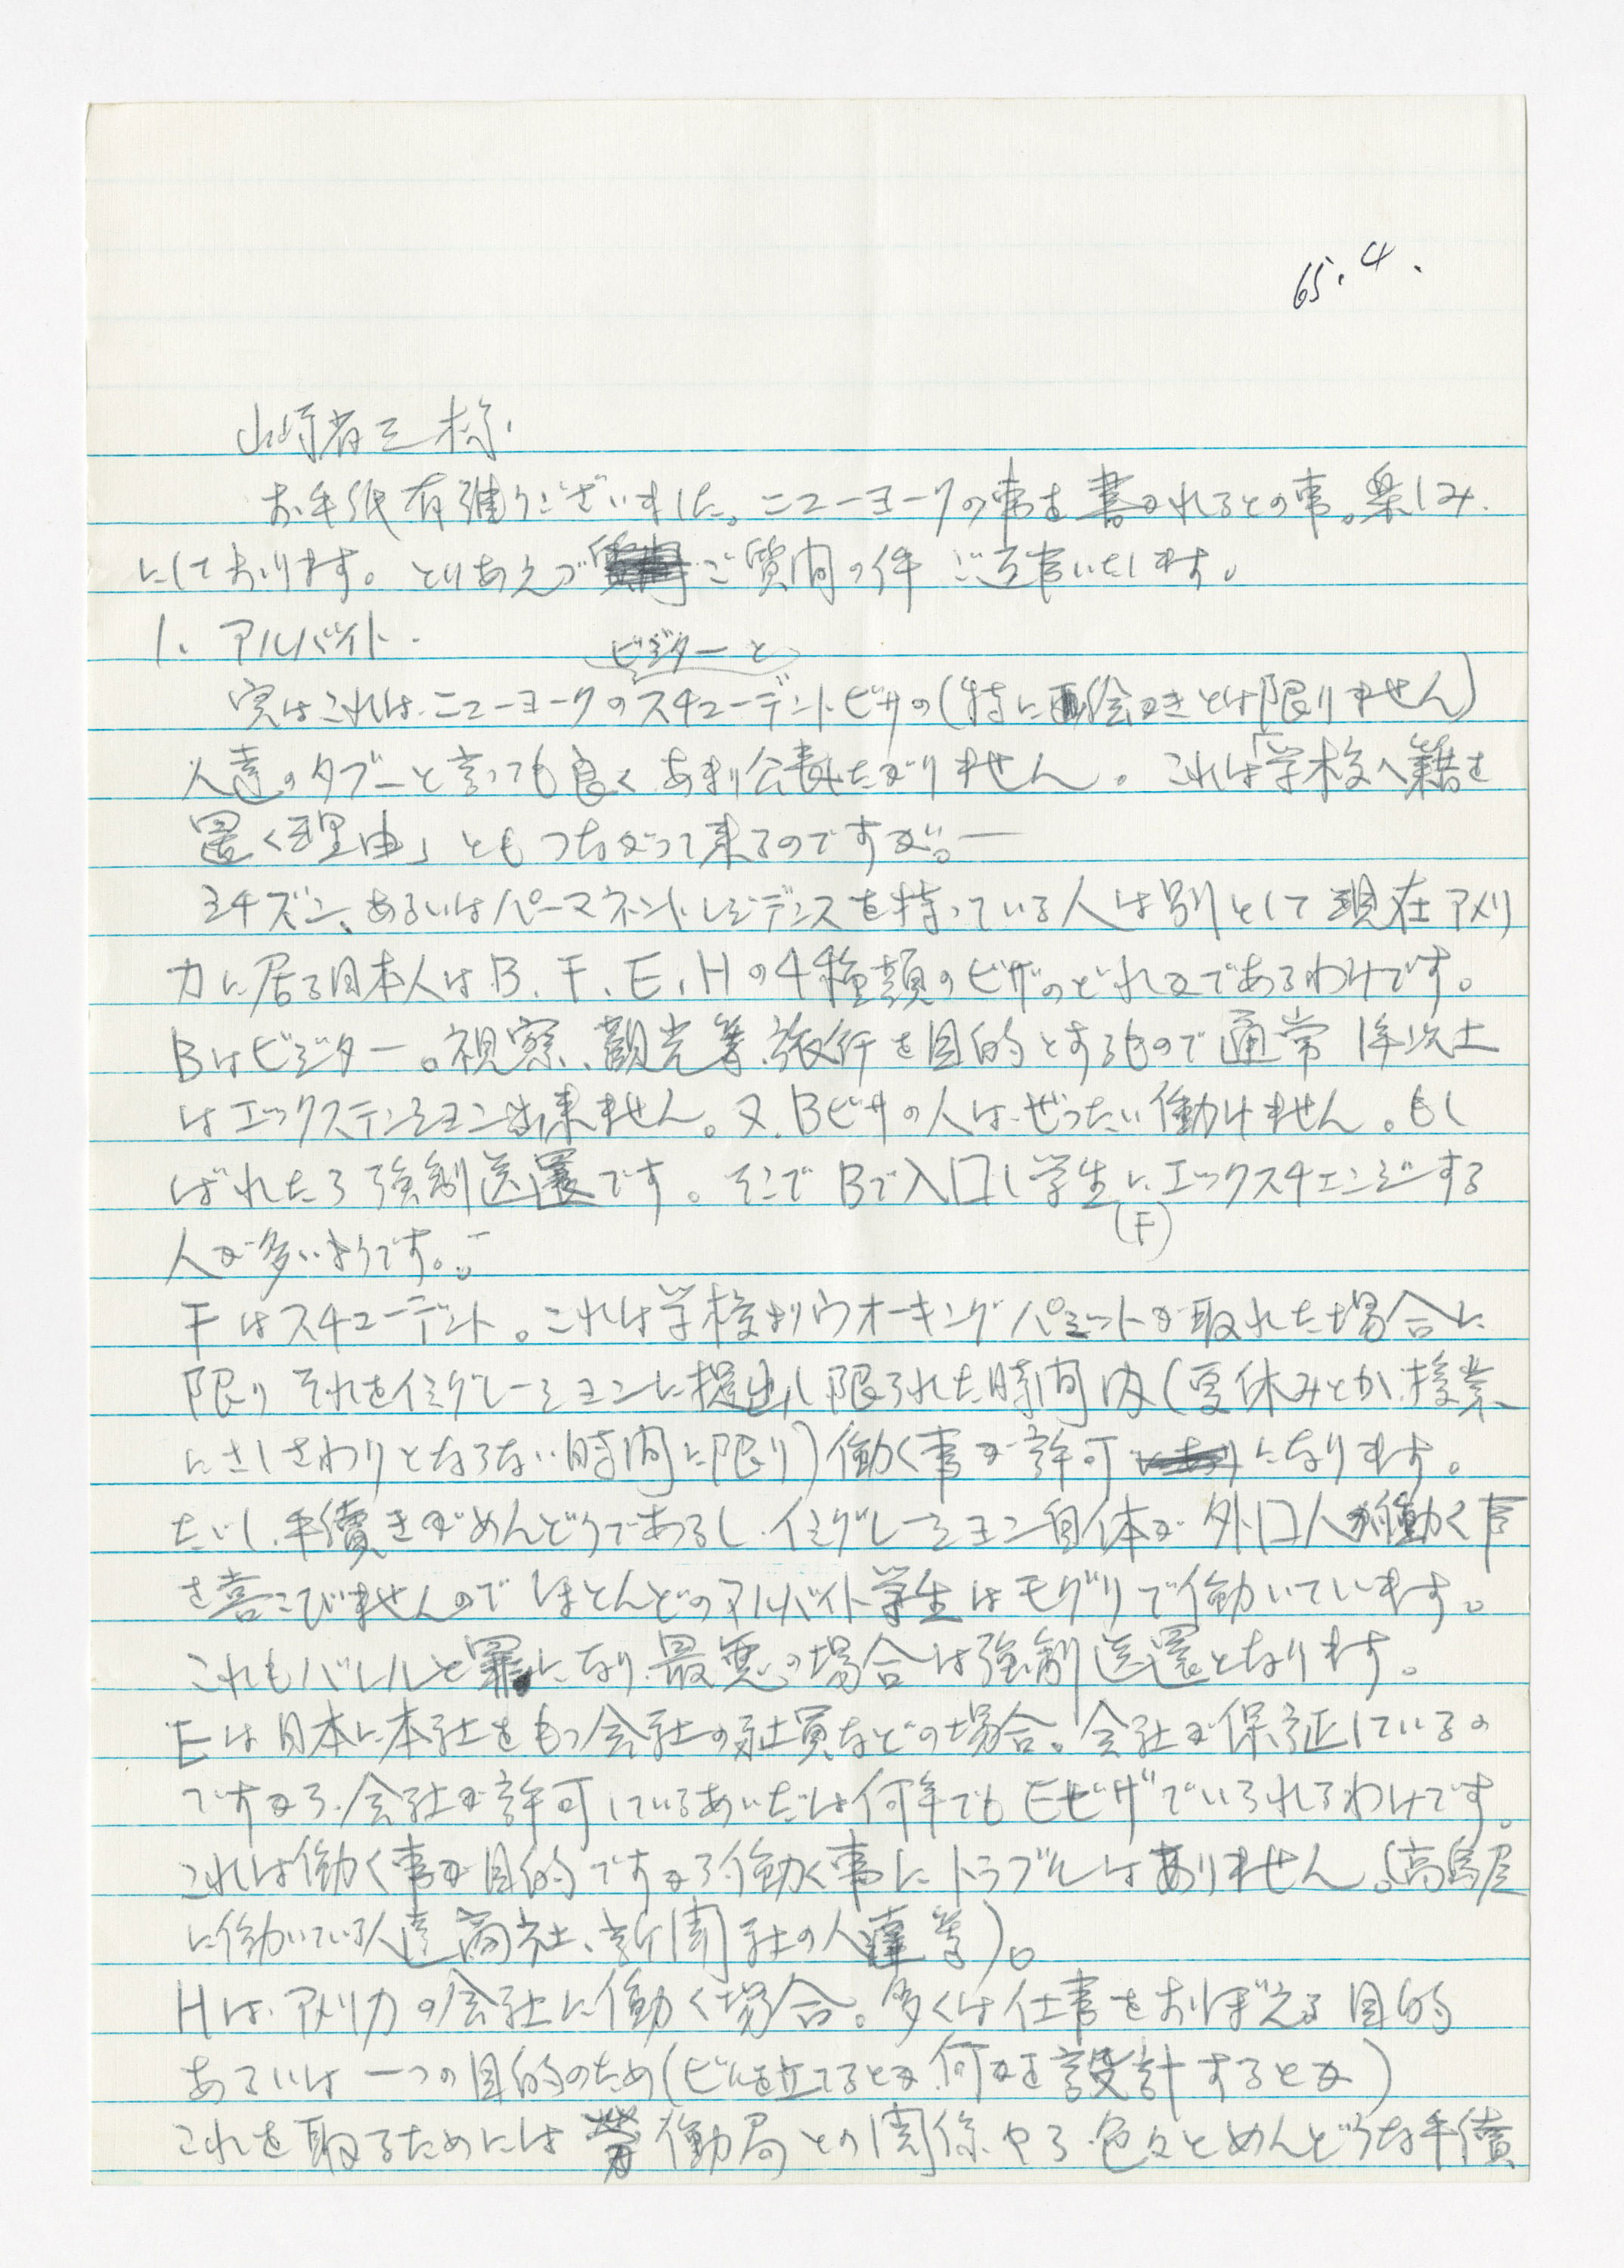 65.4.
山崎省三様.
お手紙有難うございました。ニューヨークの事を書かれるとの事。楽しみ
にしております。とりあえづ ご質問の件 ご返事いたします。
1. アルバイト.
ビジターと
実はこれは、ニューヨークのスチューデントビザの(特に画絵かきとは限りません)
人達のタブーと言っても良く あまり公表したがりません。これは「学校へ籍を
置く理由」ともつながって来るのですが。—
シチズン、あるいはパーマネントレジデンスを持っている人は別として 現在アメリ
カに居る日本人はB、F、E、Hの4種類のビザのどれかであるわけです。
Bはビジター。視察、観光等、旅行を目的とするもので通常 1年以上
はエックステンション出来ません。又、Bビザの人は、ぜったい働けません。もし
ばれたら強制送還です。そこでBで入口し学生にエックスチェンジする
(F)
人が多いようです。—
Fはスチューデント。これは学校よりウオーキングパミットが取れた場合に
限り それをイミグレーションに提出し限られた時間内(夏休みとか、授業
にさしさわりとならない時間に限り)働く事が許可になります。
ただし、手續きがめんどうであるし、イミグレーション自体が外口人が働く事
を喜こびませんので ほとんどのアルバイト学生はモグリで働いています。
これもバレルと罪になり、最悪の場合は強制送還となります。
Eは日本に本社をもつ会社の社員などの場合。会社が保証しているの
ですから、会社が許可しているあいだは何年でもEビザでいられるわけです。
これは働く事が目的ですから働く事にトラブルはありません。(高島屋
に働いている人達、商社、新聞社の人達等)。
Hは、アメリカの会社に働く場合。多くは仕事をおぼえる目的
あるいは一つの目的のため(ビルを立てるとか、何かを設計するとか)
これを取るためには労働局との関係やら、色々とめんどうな手續